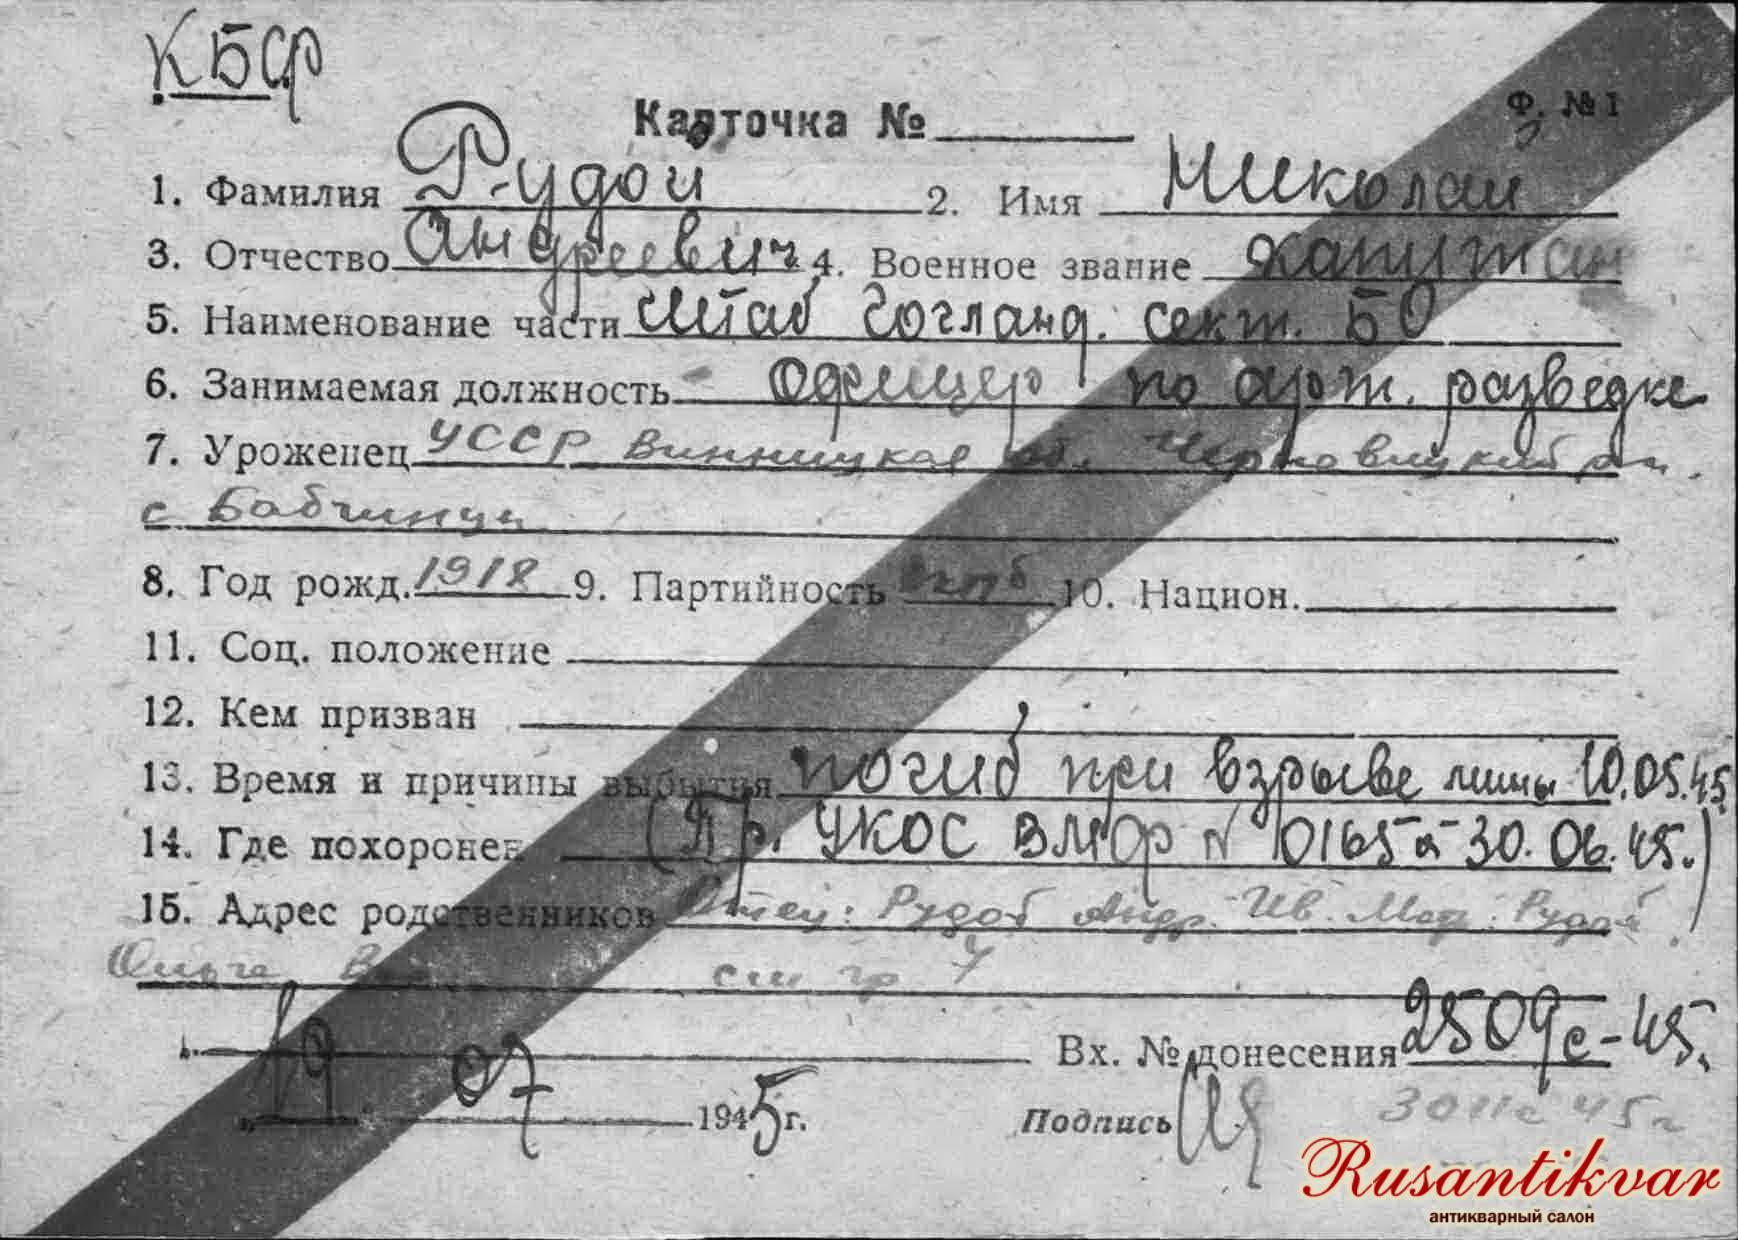 КБФ
Карточка № Ф. №1
1. Фамилия Рудой 2. Имя Николай
3. Отчество Андреевич 4. Военное звание капитан
5. Наименование части Штаб Гогланд. сект. БО
6. Занимаемая должность офицер по арт. разведке
7. Уроженец УССР Винницкая обл. Черновицкий р-н.
с. Бабчинцы
8. Год рожд. 1918 9. Партийность вкпб 10. Национ.
11. Соц. положение
12. Кем призван
13. Время и причины выбытия погиб при взрыве мины 10.05.45.
14. Где похоронен (Пр. УКОС ВМФ № 0165 от 30.06.45.)
15. Адрес родственников Отец: Рудой Андр. Ив. Мат: Рудой
Ольга см гр 7
Вх. № донесения 2509с-45.
19 07 1945 г. Подпись 3011с 45г
Rusantikvar
антикварный салон